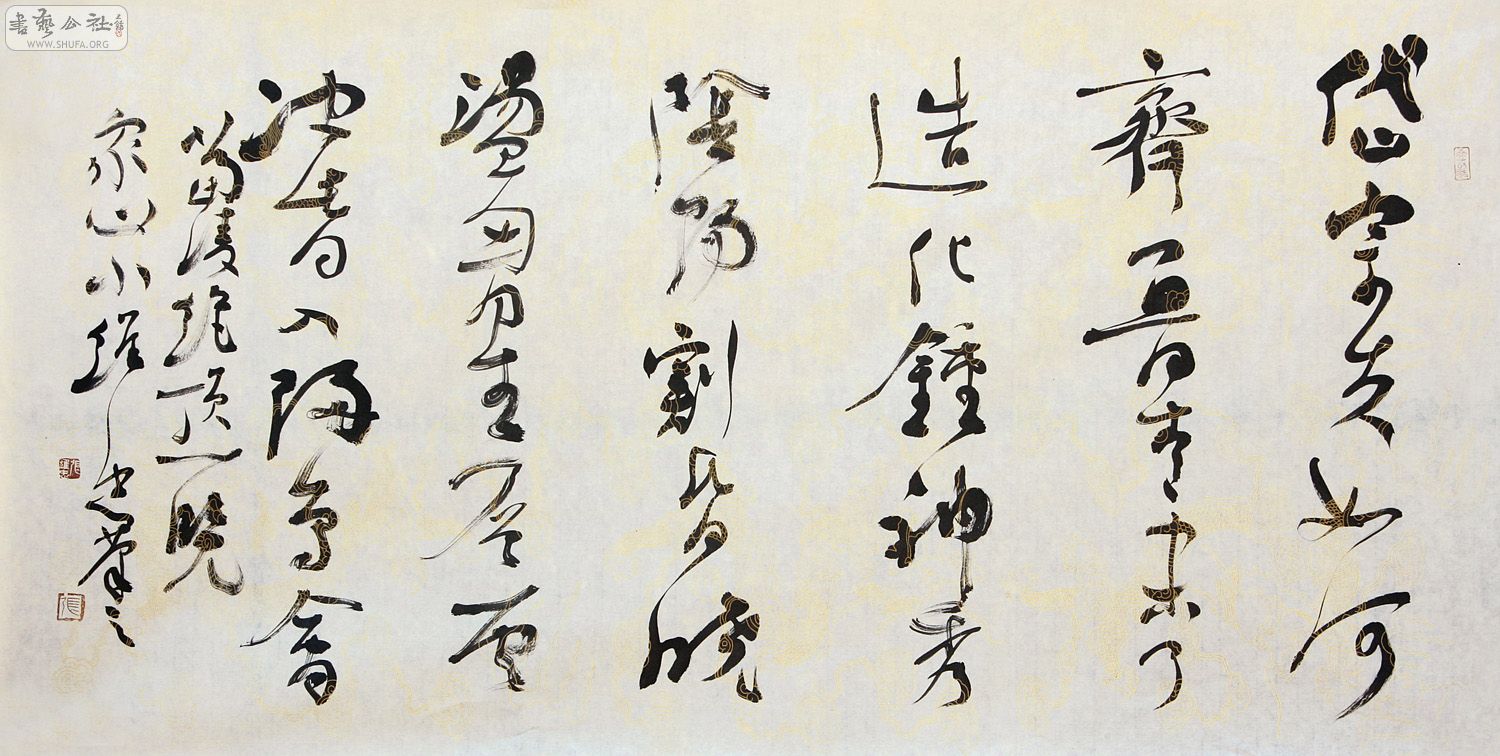 書藝公社
WWW.SHUFA.ORG
岱宗夫如何
齊魯青未了
造化鍾神秀
陰陽割昏曉
盪胷生層雲
決眥入歸鳥會
當凌絕頂一覽
眾山小 忠筆之